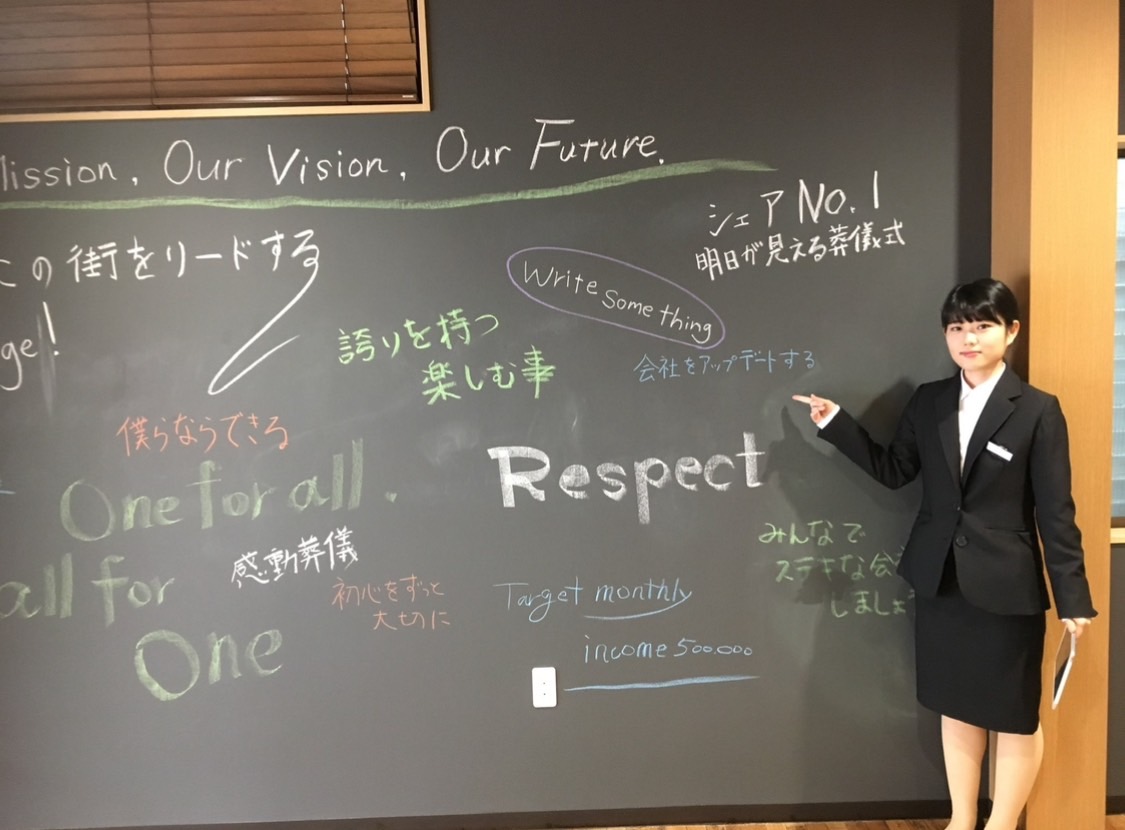 Mission, Our Vision, Our Future.
この街をリードする
ge!
シェア No.1
明日が見える葬儀式
Write Something
誇りを持つ
楽しむ事
会社をアップデートする
僕らならできる
One for all.
all for
One
感動葬儀
初心をずっと
大切に
Respect
Target monthly
income 500.000
みんなで
ステキな会
しましょ